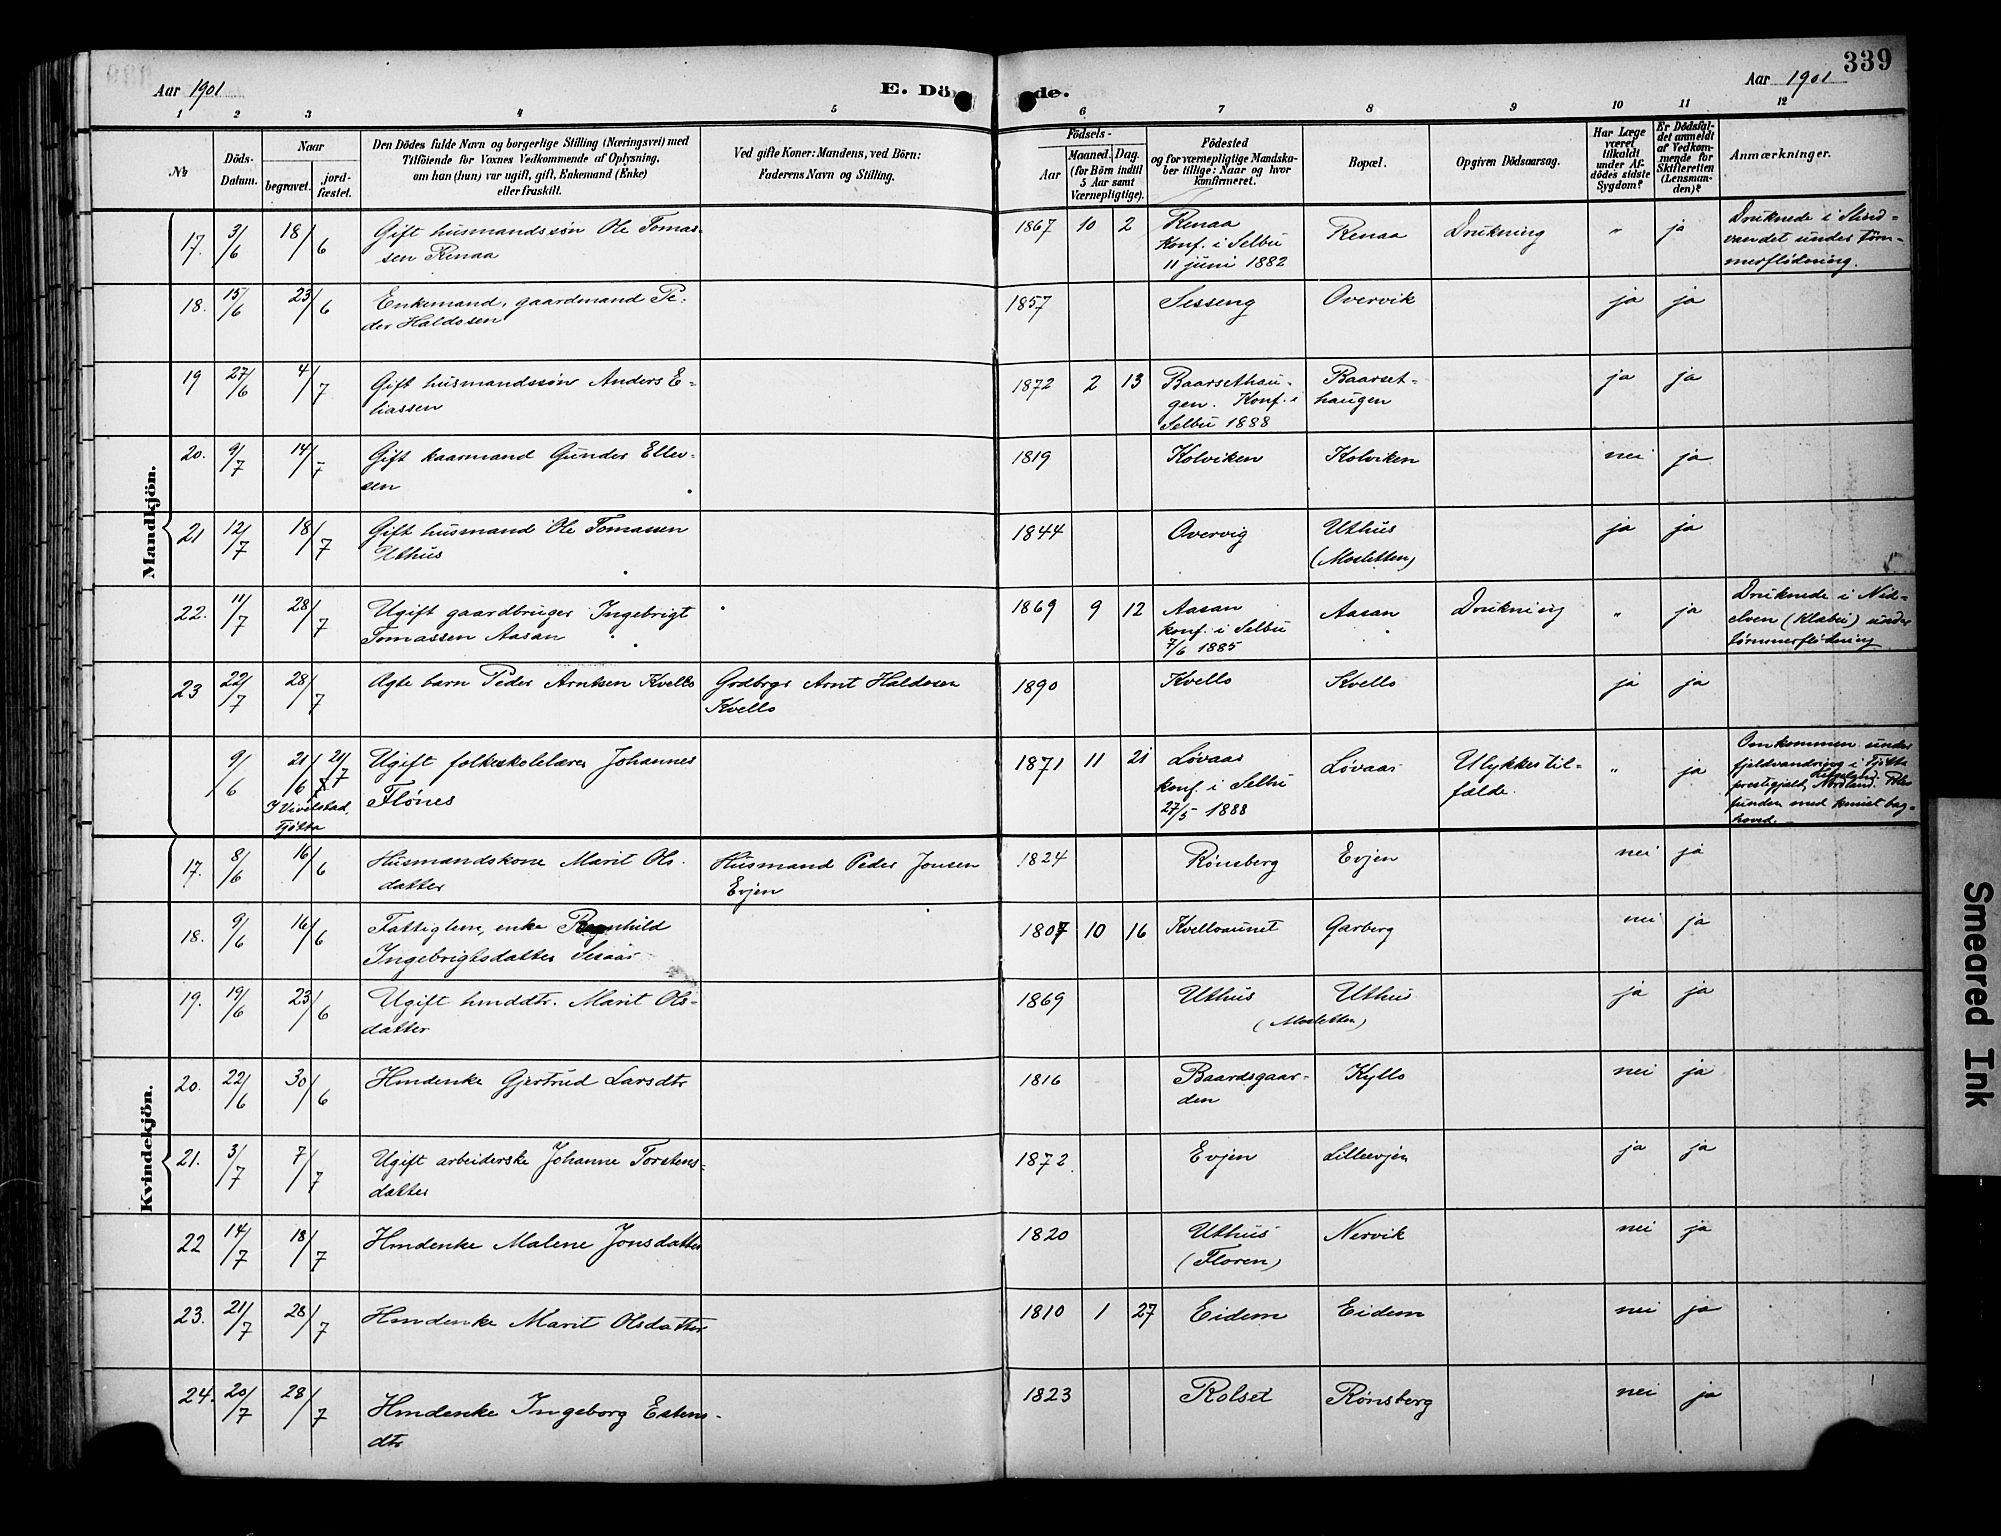 339
Aar 1901
E. Dö
de.
Aar 1901
1 2 3 4 5 6 7 8 9 10 11 12
№
Döds-
Datum.
Naar
begravet.
jord-
fæstet.
Den Dödes fulde Navn og borgerlige Stilling (Næringsvei) med
Tilföiende for Voxnes Vedkommende af Oplysning,
om han (hun) var ugift, gift, Enkemand (Enke)
eller fraskilt.
Ved gifte Koner: Mandens, ved Börn:
Faderens Navn og Stilling.
Födsels-
Aar
Maaned. Dag.
(for Börn indtil
5 Aar samt
Værnepligtige).
Födested
og for værnepligtige Mandska-
ber tillige: Naar og hvor
konfirmeret.
Bopæl.
Opgiven Dödsaarsag.
Har Læge
været
tilkaldt
under Af-
dödes sidste
Sygdom?
Er Dödsfal-
det anmeldt
af Vedkom-
mende for
Skifteretten
(Lensman-
den)?
Anmærkninger.
Mandkjön.
17. 3/6 18/6 Gift husmandssøn Ole Tomas- 1867 10 2 Renaa Renaa Drukning " ja Druknede i
sen Renaa konf. i Selbu vandet under tøm-
11 juni 1882 merflödning.
18. 15/6 23/6 Enkemand, gaardmand Pe- 1857 Sesseng Overvik ja ja
der Haldosen
19 27/6 4/7 Gift husmandssøn Anders E- 1872 2 13 Baarsethau- Baarset- ja ja
liassen gen. Konf. i haugen
Selbu 1888
20. 9/7 14/7 Gift kaarmand Gunder Ellev- 1819 Kolviken Kolviken nei ja
sen
21 12/7 18/7 Gift husmand Ole Tomassen 1844 Overvig Uthus ja ja
Uthus (Mosletten)
22. 11/7 28/7 Ugift gaardbruger Ingebrigt 1869 9 12 Aasan Aasan Drukning " ja Druknede i Nid-
Tomassen Aasan konf. i Selbu elven (Klæbu) under
7/6 1885 tømmerflödning
23 22/7 28/7 Ægte barn Peder Arntsen Kvello Grdbrgr Arnt Haldosen 1890 Kvello Kvello ja ja
Kvello
9/6 21/6 21/7 Ugift folkeskolelærer Johannes 1871 11 21 Løvaas Løvaas Ulykkestil- " ja Omkommen under
Flönes konf. i Selbu fælde. fjeldvandring i Tjötta
I Vivelstad, 27/5 1888 prestegjeld, Nordland.
Tjötta funden med knust bag-
hoved.
Kvindekjön.
17. 8/6 16/6 Husmandskone Marit Ols- Husmand Peder Jonsen 1824 Rønsberg Evjen nei ja
datter Evjen
18. 9/6 16/6 Fattiglem, enke Ragnhild 1807 10 16 Kvelloaunet Garberg nei ja
Ingebrigtsdatter Seraas
19. 19/6 23/6 Ugift hmddtr. Marit Ols- 1869 Uthus Uthus ja ja
datter (Mosletten)
20. 22/6 30/6 Hmdenke Gjertrud Larsdtr 1816 Baardsgaar- Kyllo nei ja
den
21. 3/7 7/7 Ugift arbeiderske Johanne Torstens- 1872 Evjen Lilleevjen ja ja
datter
22 14/7 18/7 Hmdenke Malene Jonsdatter 1820 Uthus Nervik nei ja
(Floren)
23. 21/7 28/7 Hmdenke Marit Olsdatter 1810 1 27 Eidem Eidem nei ja
24. 20/7 28/7 Hmdenke Ingeborg Estens- 1823 Rolset Rønsberg nei ja
dtr
Smeared Ink